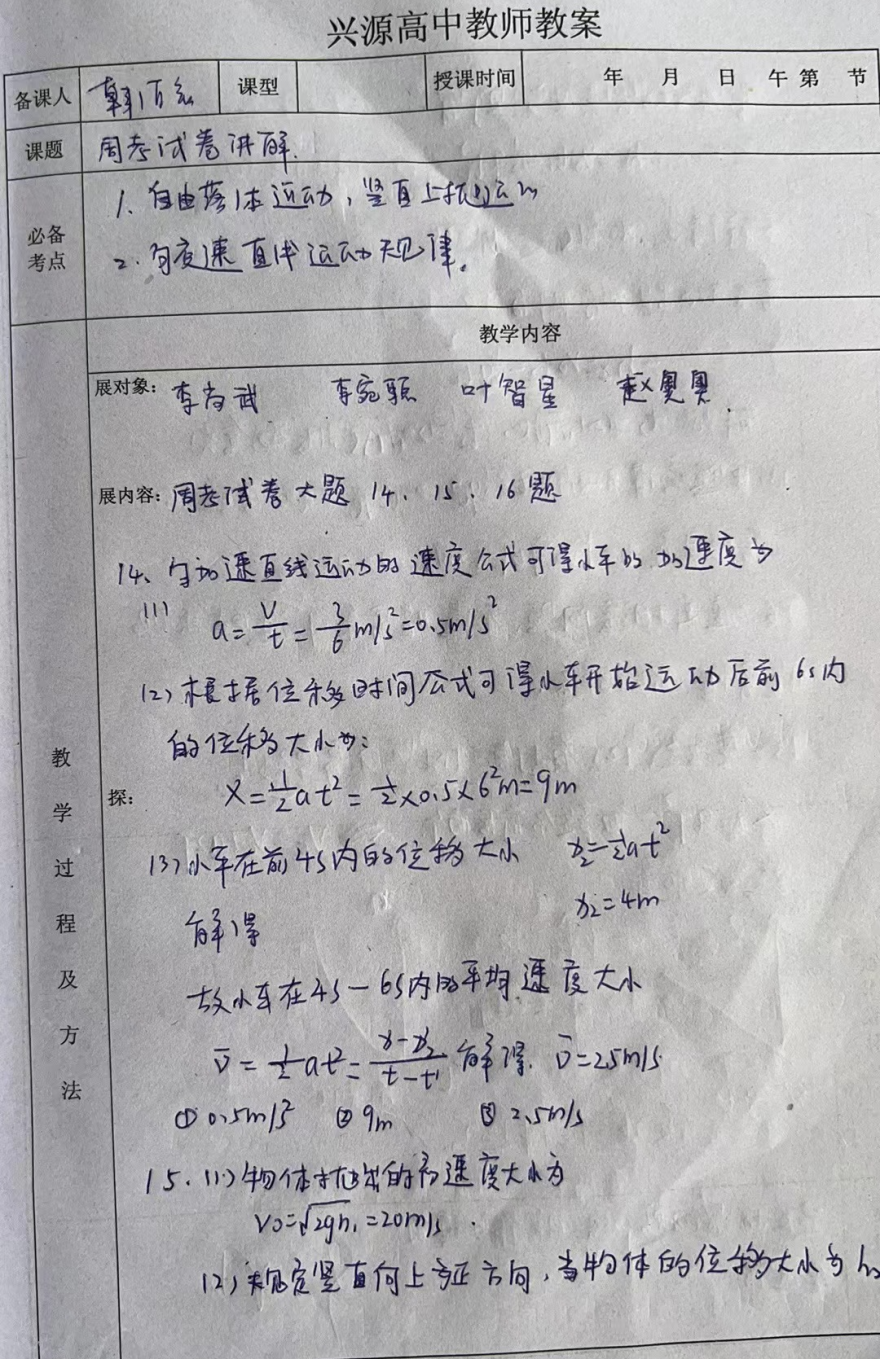 兴源高中教师教案
备课人 韩百 课型 授课时间 年 月 日 午 第 节
课题 周考试卷讲解.
必备考点
1. 自由落体运动，竖直上抛运动
2. 匀变速直线运动规律。
教学内容
展对象: 李尚武 李宛颐 叶智星 赵奥奥
展内容: 周考试卷大题 14、15、16题
14、匀加速直线运动的速度公式可得小车的加速度为
(1) a=V/t=3/6 m/s²=0.5m/s²
(2) 根据位移时间公式可得小车开始运动后前6s内
的位移大小为:
教学过程及方法
探: X=1/2at²=1/2×0.5×6²m=9m
(3) 小车在前4s内的位移大小 x₂=1/2at²
x₂=4m
解得
故小车在4s-6s内的平均速度大小
v̄=1/2at²=(x-x₂)/(t-t') 解得. v̄=2.5m/s
① 0.5m/s² ② 9m ③ 2.5m/s
15. (1) 物体抛出的初速度大小为
V0=√2gh₁=20m/s.
(2) 规定竖直向上为正方向，当物体的位移大小为h₂